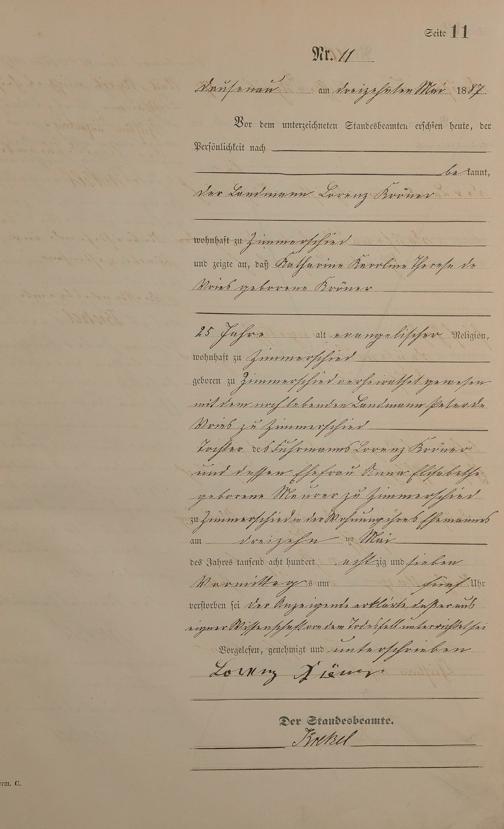 Seite 11
Nr. 11
Dausenau am dreizehnten Mai 1887
Vor dem unterzeichneten Standesbeamten erschien heute, der
Persönlichkeit nach
be kannt,
der Landmann Lorenz Kröner
wohnhaft zu Zimmerschied
und zeigte an, daß Katharine Karoline Therese de
Vries geborene Kröner
25 Jahre alt evangelischer Religion,
wohnhaft zu Zimmerschied
geboren zu Zimmerschied verheirathet gewesen
mit dem noch lebenden Landmann Peter de
Vries zu Zimmerschied
Tochter des Fuhrmanns Lorenz Kröner
und dessen Ehefrau Anna Elisabethe
geborene Maurer zu Zimmerschied
zu Zimmerschied in der Wohnung ihres Ehemannes
am dreizehn ten Mai
des Jahres tausend acht hundert achtzig und sieben
Vormittags um fünf Uhr
verstorben sei der Anzeigende erklärte daß er aus
eigner Wissenschaft von dem Todesfall unterrichtet sei
Vorgelesen, genehmigt und unterschrieben
Lorenz Kröner
Der Standesbeamte.